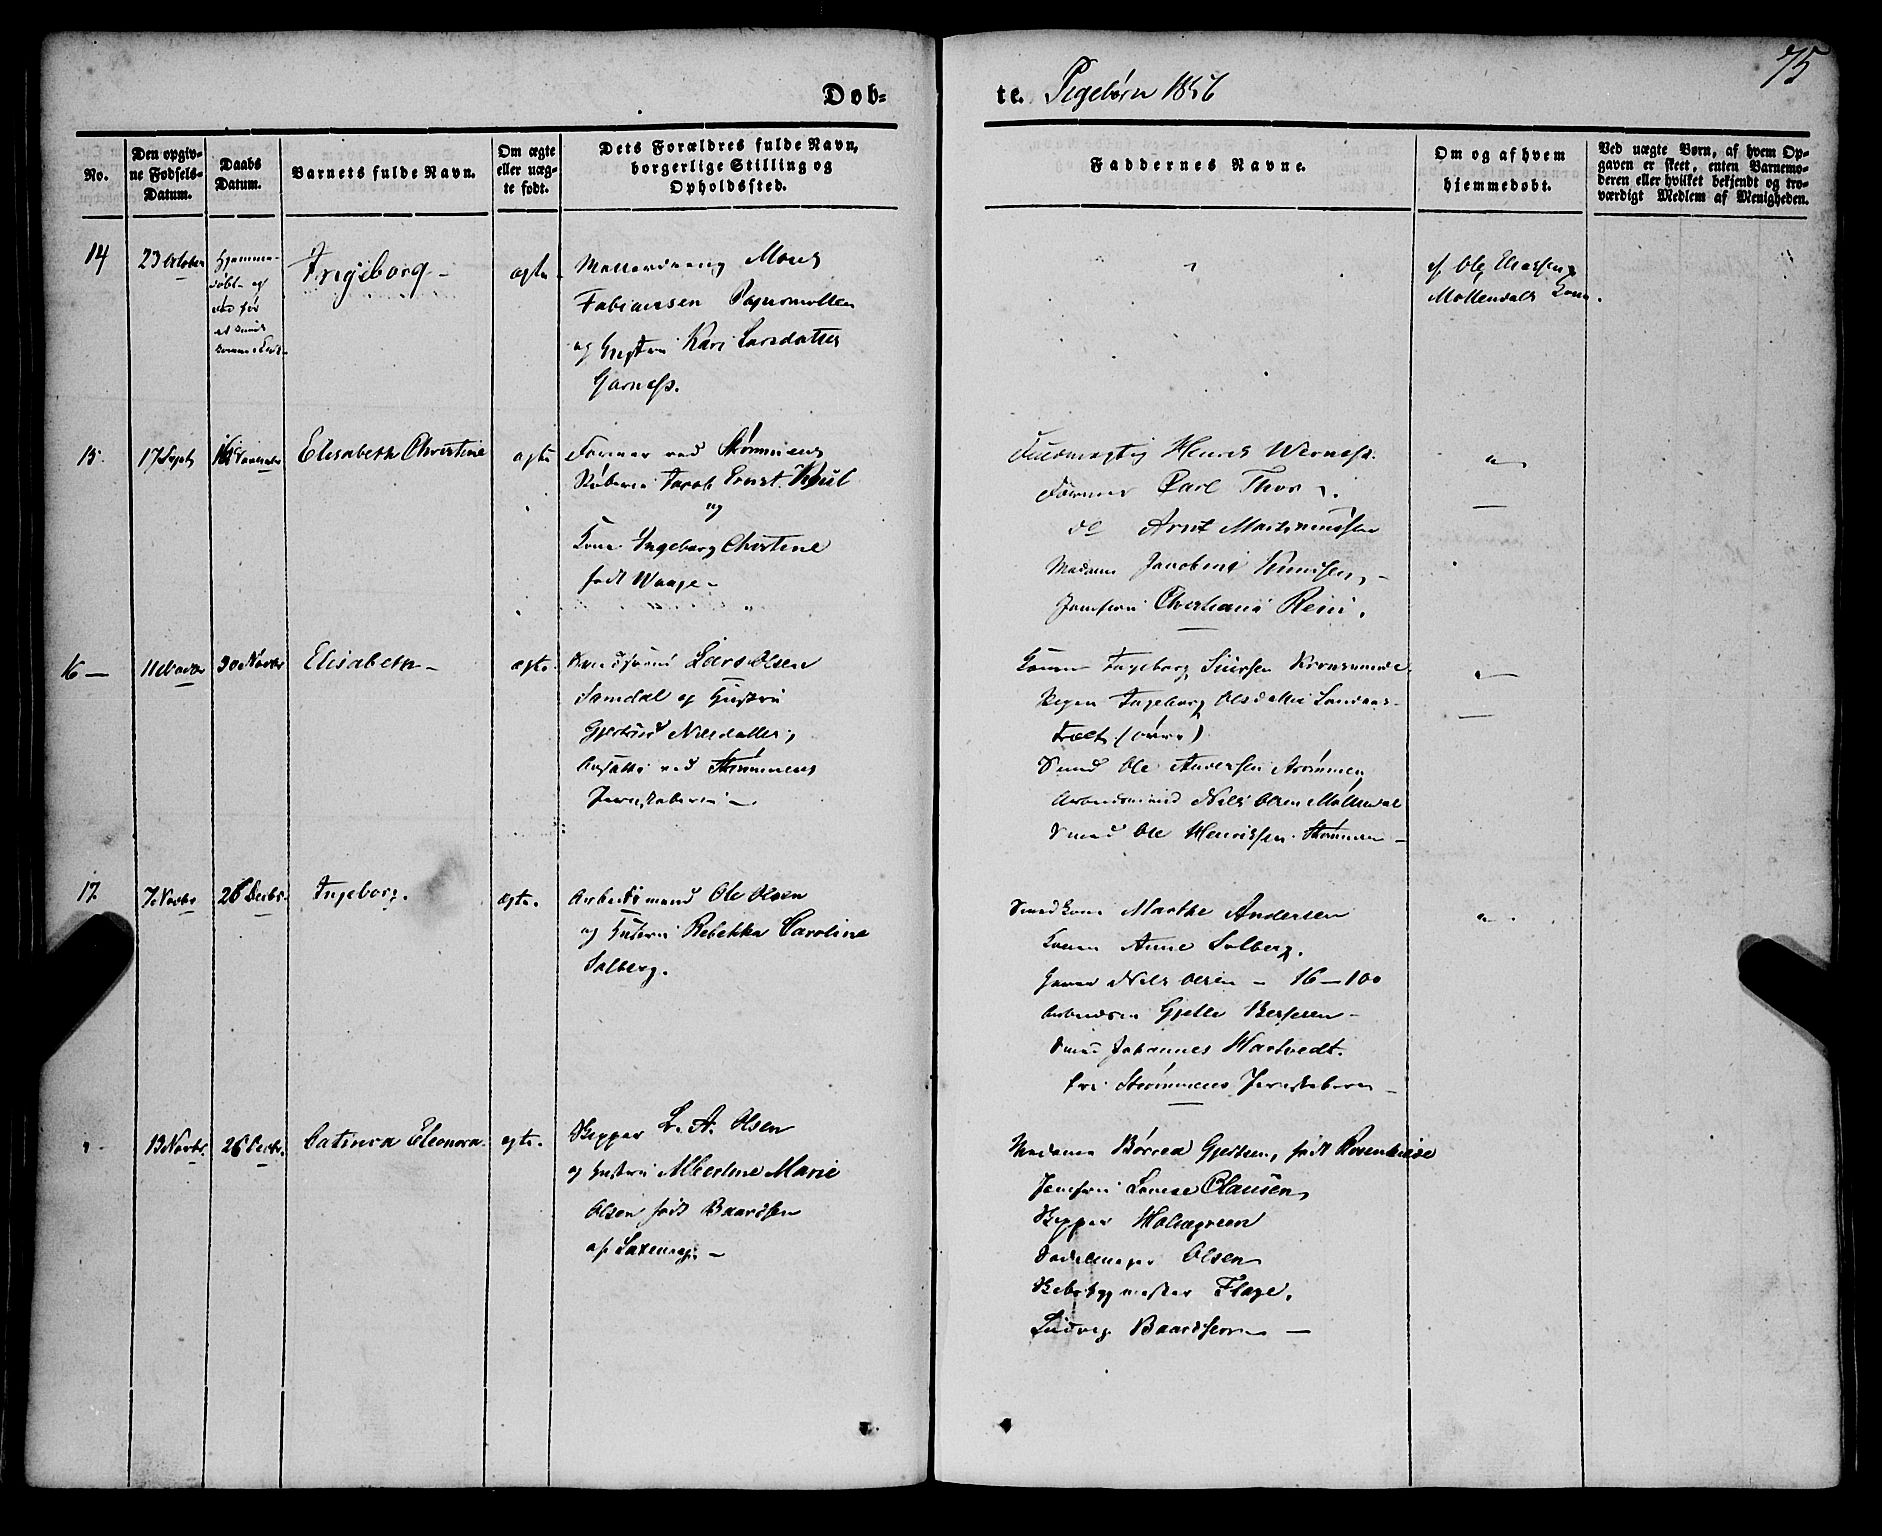 75
Dob=
te. Pigebørn 1856
No.
Den opgiv=
ne Fødsels=
Datum.
Daabs
Datum.
Barnets fulde Navn.
Om ægte
eller uæg=
te født.
Dets Forældres fulde Navn,
borgerlige Stilling og
Opholdssted.
Faddernes Navne.
Om og af hvem
hjemmedøbt.
Ved uægte Børn, af hvem Op=
gaven er skeet, enten Barnemo=
deren eller hvilket bekjendt og tro=
værdigt Medlem af Menigheden.
14
23 October
Hjemme-
døbt og
død før
Ingeborg -
ægte
Møllersvend Mons
Fabiansen Papirmøllen
og Hustru Kari Larsdatter
Garnæss.
af Ole Eliassen
Møllendals Kone.
15.
17 Sept
16 November
Elisabeth Christine
ægte
Former ved Strømmens
Støberi Jacob Ernst
og
Kone Ingeborg Christine
født Waage -
Fuldmægtig Henrik Werness.
Former Carl Thor
do Arnt
Madame Jacobine Knudsen,
Jomfru Christiane Rein.
16 -
11 Novbr
30 Novbr
Elisabeth -
ægte.
Lars Olsen
Samdal og Hustru
Gjertrud Nilsdatter,
Ansatte ved Strømmens
Jernstøberi -
Konen Ingeborg
Pigen Ingeborg Olsdatter
(øvre)
Smed Ole Andersen Strømmen
Arbeidsmand Nils Olsen Møllendal
Smed Ole Henrikssen Strømmen -
17.
7 Novbr
26 Decbr.
Ingeborg.
ægte.
Arbeidsmand Ole Olsen
og Hustru Rebekka Caroline
Solberg.
Smedkone Marthe Andersen
Konen Anne Solberg.
Nils Olsen - 16-100
Gjelle
Smed Johannes Hartvedt.
Strømmens Jernstøberi -
13 Novbr.
26 Decbr.
Catinca Eleonora.
ægte.
Skipper L. A. Olsen
og Hustru Albertine Marie
Olsen født Baardsen
af Laxevaag. -
Madame Børrea Gjertsen, født Rosenkilde
Jomfru Louise Clausen
Skipper Holmgreen
Sadelmager Olsen
Skibsbygmester Flage.
Ludvig Baardsen -